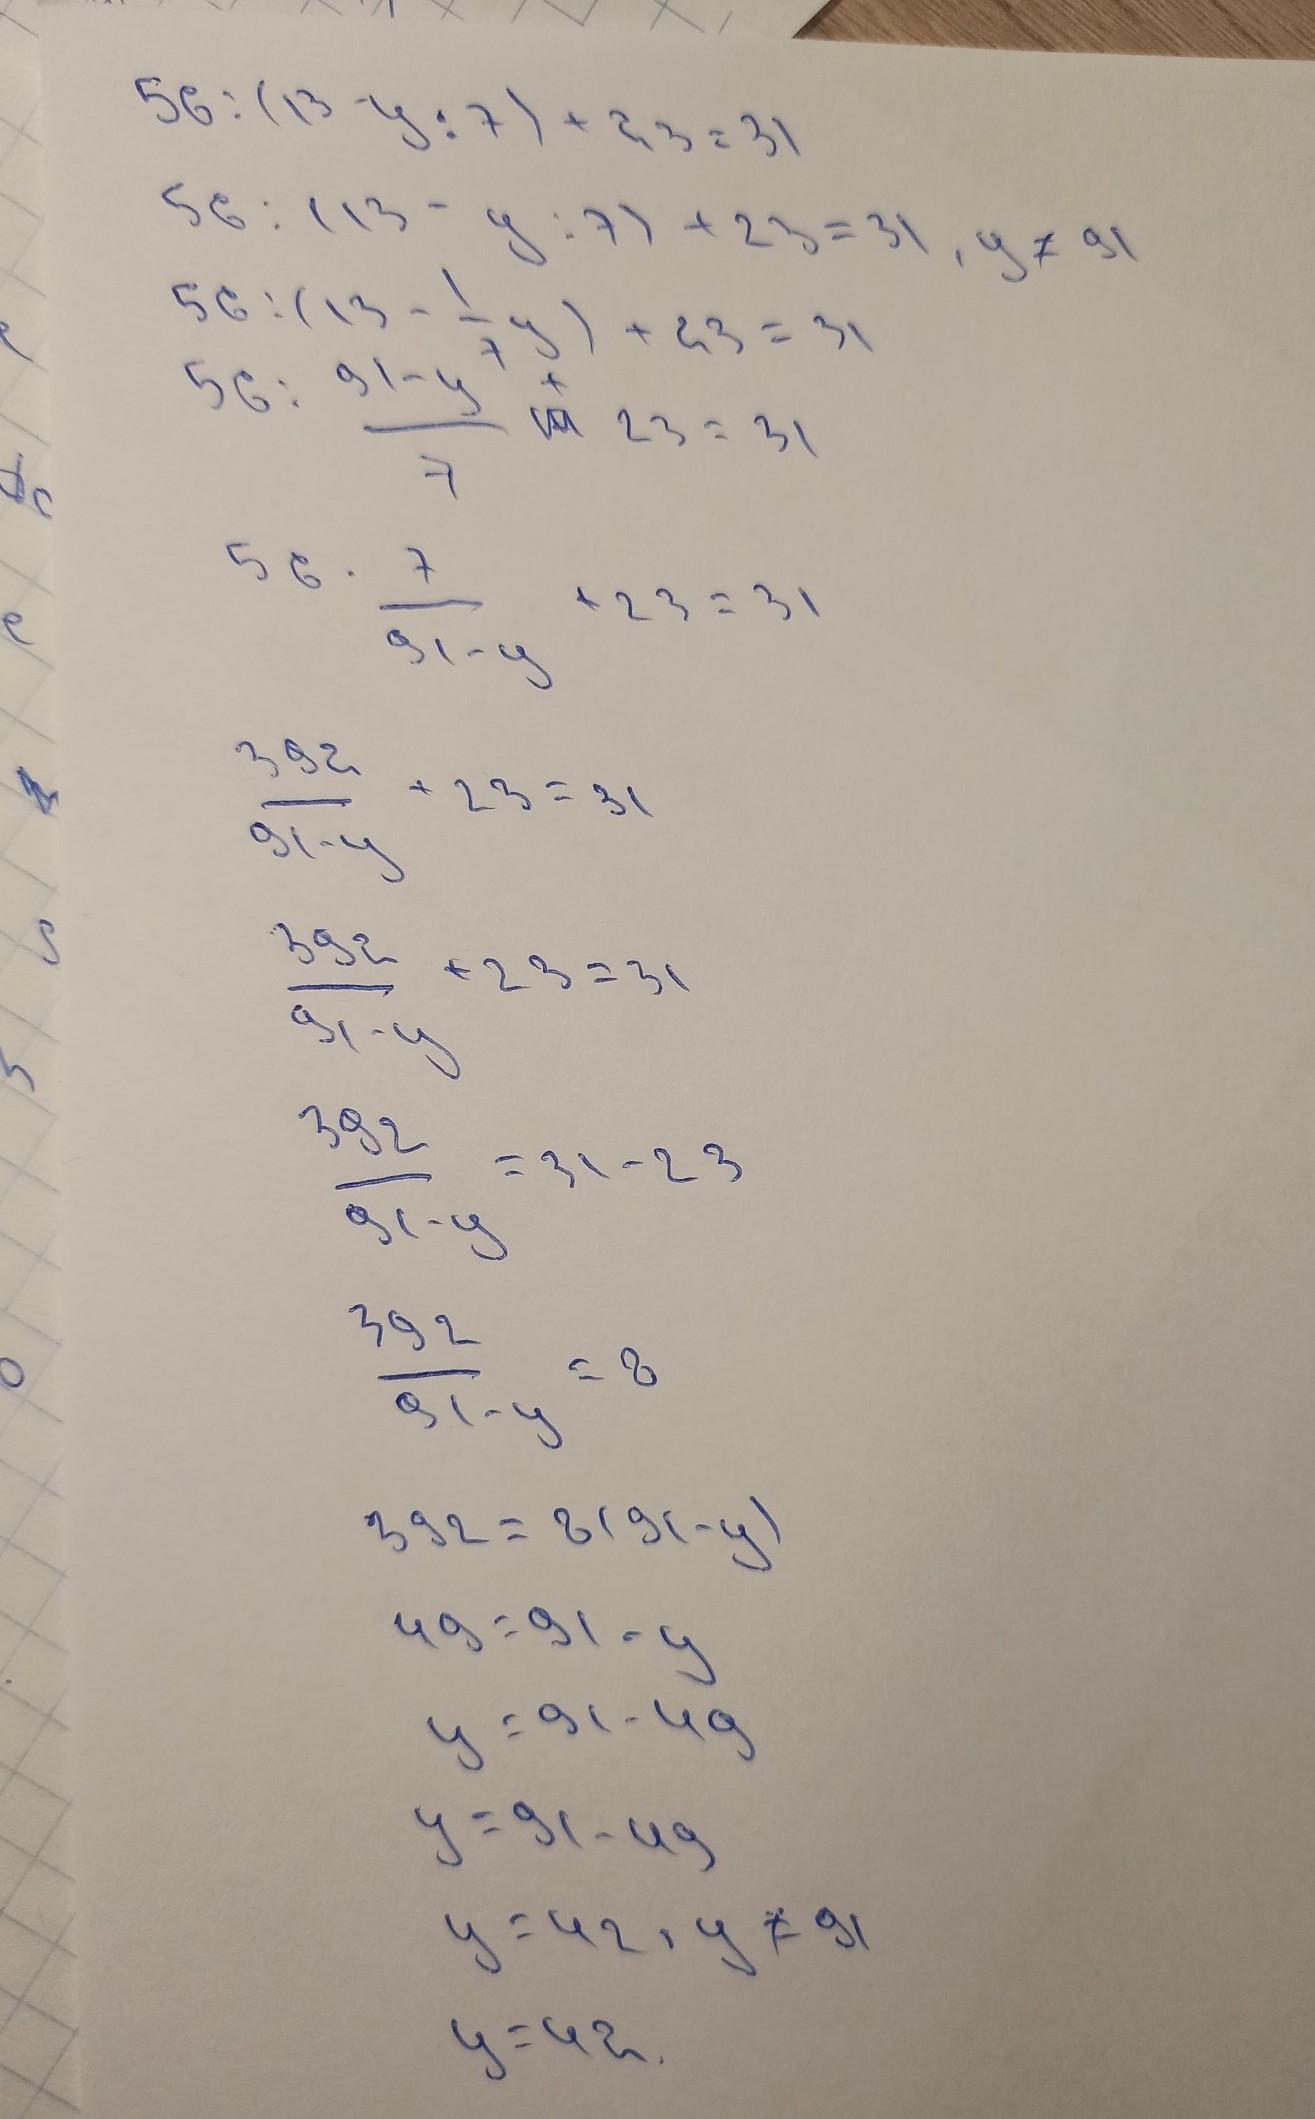 56:(13-y:7)+23=31
56:(13-y:7)+23=31, y≠91
56:(13-1/7y)+23=31
56: 91-y/7 + 23=31
56·7/91-y +23=31
392/91-y +23=31
392/91-y +23=31
392/91-y =31-23
392/91-y =8
392=8(91-y)
49=91-y
y=91-49
y=91-49
y=42, y≠91
y=42.